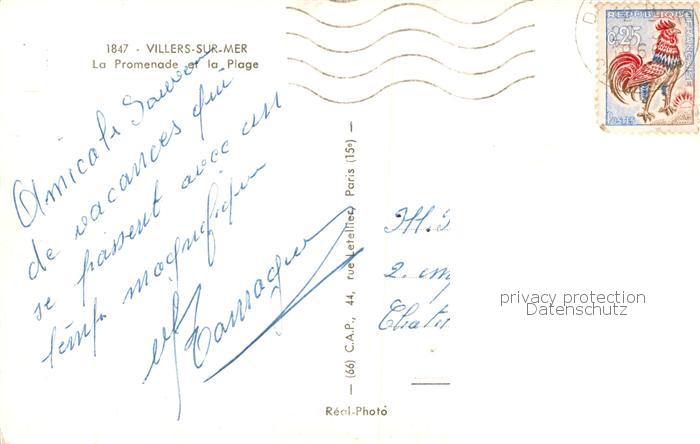 1847 - VILLERS-SUR-MER
La Promenade et la Plage
Amicale Souvenir
de vacances qui
se passent avec un
temps magnifique
(66) C.A.P., 44, rue Letellier, Paris (15e)
Réal-Photo
REPUBLIQUE FRANÇAISE
0,25
POSTES
M.
2.
privacy protection
Datenschutz